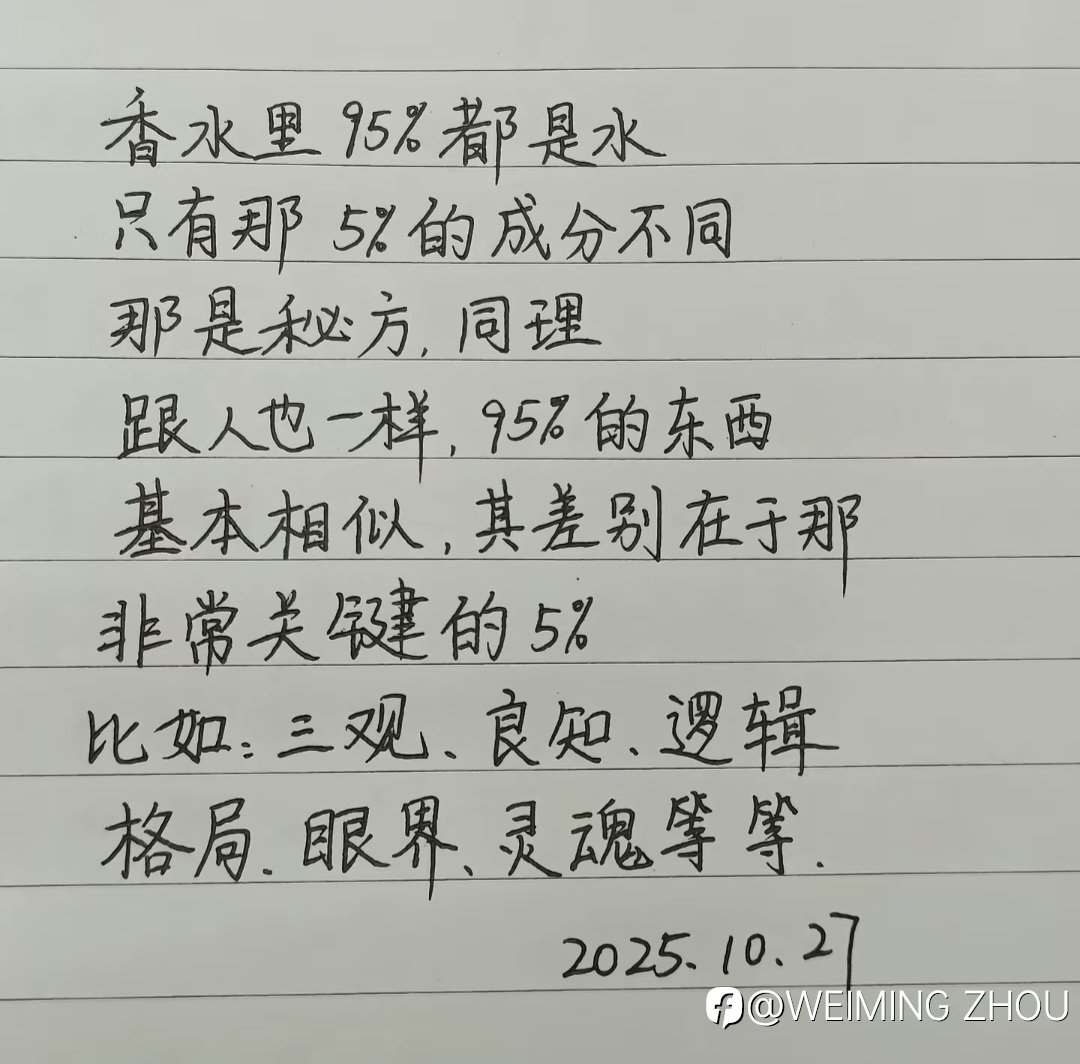 香水里95%都是水
只有那5%的成分不同
那是秘方,同理
跟人也一样,95%的东西
基本相似,其差别在于那
非常关键的5%
比如:三观、良知、逻辑
格局、眼界、灵魂等等.
2025.10.27
@WEIMING ZHOU